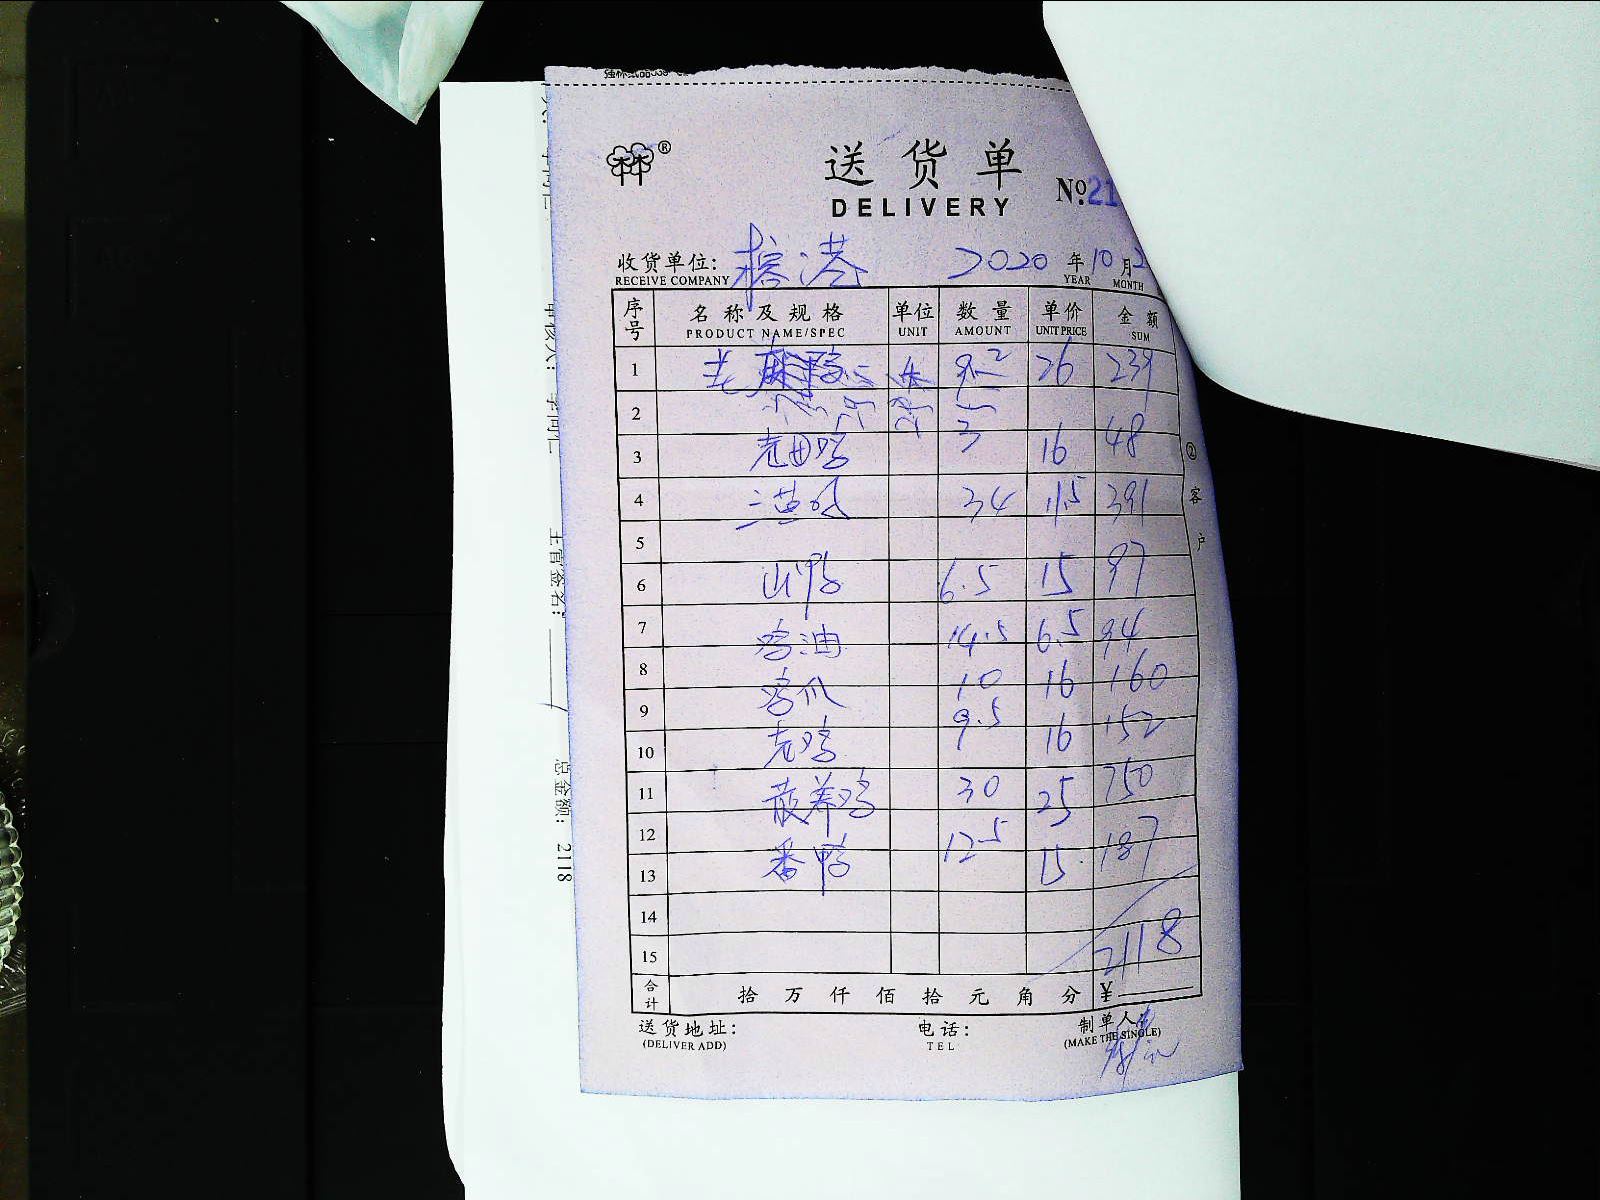 送货单
DELIVERY
№:21
收货单位: 榕港 2020 年 10 月 2
RECEIVE COMPANY YEAR MONTH
序号 名称及规格 单位 数量 单价 金额
PRODUCT NAME/SPEC UNIT AMOUNT UNIT PRICE SUM
1 9.2 26 239
2
3 老田鸡 3 16 48
4 三黄鸡 34 11.5 391
5
6 山鸭 6.5 15 97
7 鸡油 14.5 6.5 94
8 鸡爪 10 16 160
9 9.5 16 152
10 老鸡
11 散养鸡 30 25 750
12 12.5 187
13 番鸭 15
14
15 2118
合计 拾 万 仟 佰 拾 元 角 分 ¥
送货地址: 电话: 制单人
(DELIVER ADD) TEL (MAKE THE SINGLE)
②客户
主管签名:
总金额: 2118